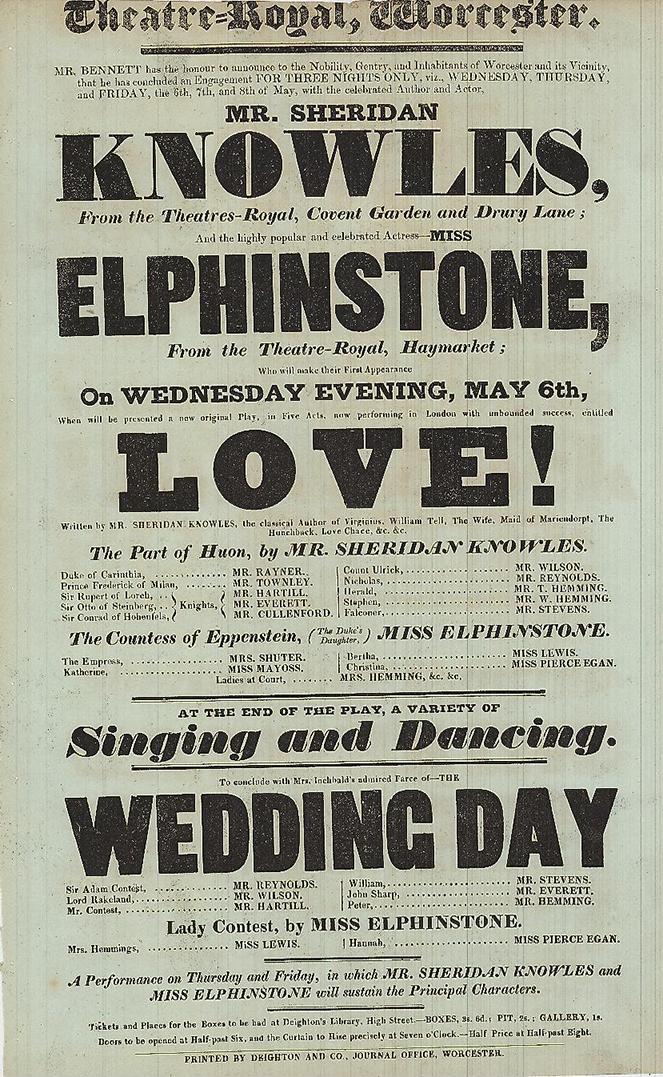 Theatre-Royal, Worcester.
MR. BENNETT has the honour to announce to the Nobility, Gentry, and Inhabitants of Worcester and its Vicinity,
that he has concluded an Engagement FOR THREE NIGHTS ONLY, viz., WEDNESDAY, THURSDAY,
and FRIDAY, the 6th, 7th, and 8th of May, with the celebrated Author and Actor,
MR. SHERIDAN
KNOWLES,
From the Theatres-Royal, Covent Garden and Drury Lane;
And the highly popular and celebrated Actress—MISS
ELPHINSTONE,
From the Theatre-Royal, Haymarket;
Who will make their First Appearance
On WEDNESDAY EVENING, MAY 6th,
When will be presented a new original Play, in Five Acts, now performing in London with unbounded success, entitled
LOVE!
Written by MR. SHERIDAN KNOWLES, the classical Author of Virginius, William Tell, The Wife, Maid of Mariendorpt, The
Hunchback, Love Chace, &c. &c.
The Part of Huon, by MR. SHERIDAN KNOWLES.
Duke of Carinthia, ............ MR. RAYNER.
Prince Frederick of Milan, ............ MR. TOWNLEY.
Sir Rupert of Lorch, .. } Knights, { MR. HARTILL.
Sir Otto of Steinberg, .. } Knights, { MR. EVERETT.
Sir Conrad of Hohenfels, } Knights, { MR. CULLENFORD.
Count Ulrick, .................. MR. WILSON.
Nicholas, .................. MR. REYNOLDS.
Herald, .................. MR. T. HEMMING.
Stephen, .................. MR. W. HEMMING.
Falconer, .................. MR. STEVENS.
The Countess of Eppenstein, (The Duke's Daughter,) MISS ELPHINSTONE.
The Empress, ............ MRS. SHUTER.
Katherine, ............ MISS MAYOSS.
Bertha, .................. MISS LEWIS.
Christina, .................. MISS PIERCE EGAN.
Ladies at Court, ........ MRS. HEMMING, &c. &c.
AT THE END OF THE PLAY, A VARIETY OF
Singing and Dancing.
To conclude with Mrs. Inchbald's admired Farce of—THE
WEDDING DAY
Sir Adam Contest, ............ MR. REYNOLDS.
Lord Rakeland, ............ MR. WILSON.
Mr. Contest, ............ MR. HARTILL.
William, .................. MR. STEVENS.
John Sharp, .................. MR. EVERETT.
Peter, .................. MR. HEMMING.
Lady Contest, by MISS ELPHINSTONE.
Mrs. Hemmings, ............ MISS LEWIS. | Hannah, .................. MISS PIERCE EGAN.
A Performance on Thursday and Friday, in which MR. SHERIDAN KNOWLES and
MISS ELPHINSTONE will sustain the Principal Characters.
Tickets and Places for the Boxes to be had at Deighton's Library, High Street.—BOXES, 3s. 6d.; PIT, 2s.; GALLERY, 1s.
Doors to be opened at Half-past Six, and the Curtain to Rise precisely at Seven o'Clock.—Half Price at Half-past Eight.
PRINTED BY DEIGHTON AND CO., JOURNAL OFFICE, WORCESTER.